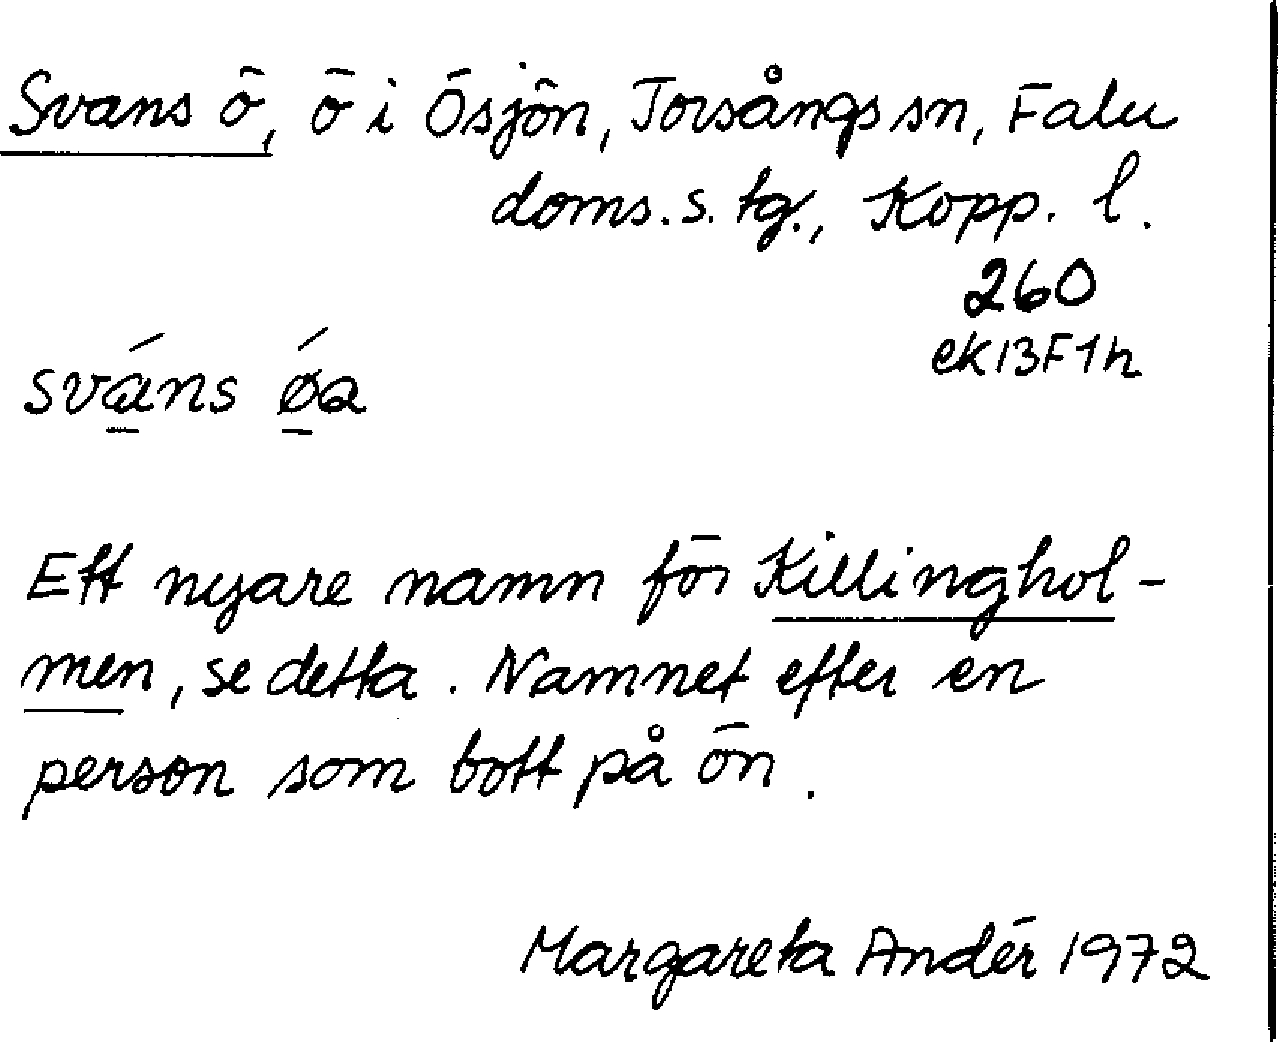 Svans ö, ö i Ösjön, Torsångs sn, Falu
doms.s. tg., Kopp. l.
260
ek 13F1h
sváns ǿa
Ett nyare namn för Killinghol-
men, se detta. Namnet efter en
person som bott på ön.
Margareta Andér 1972